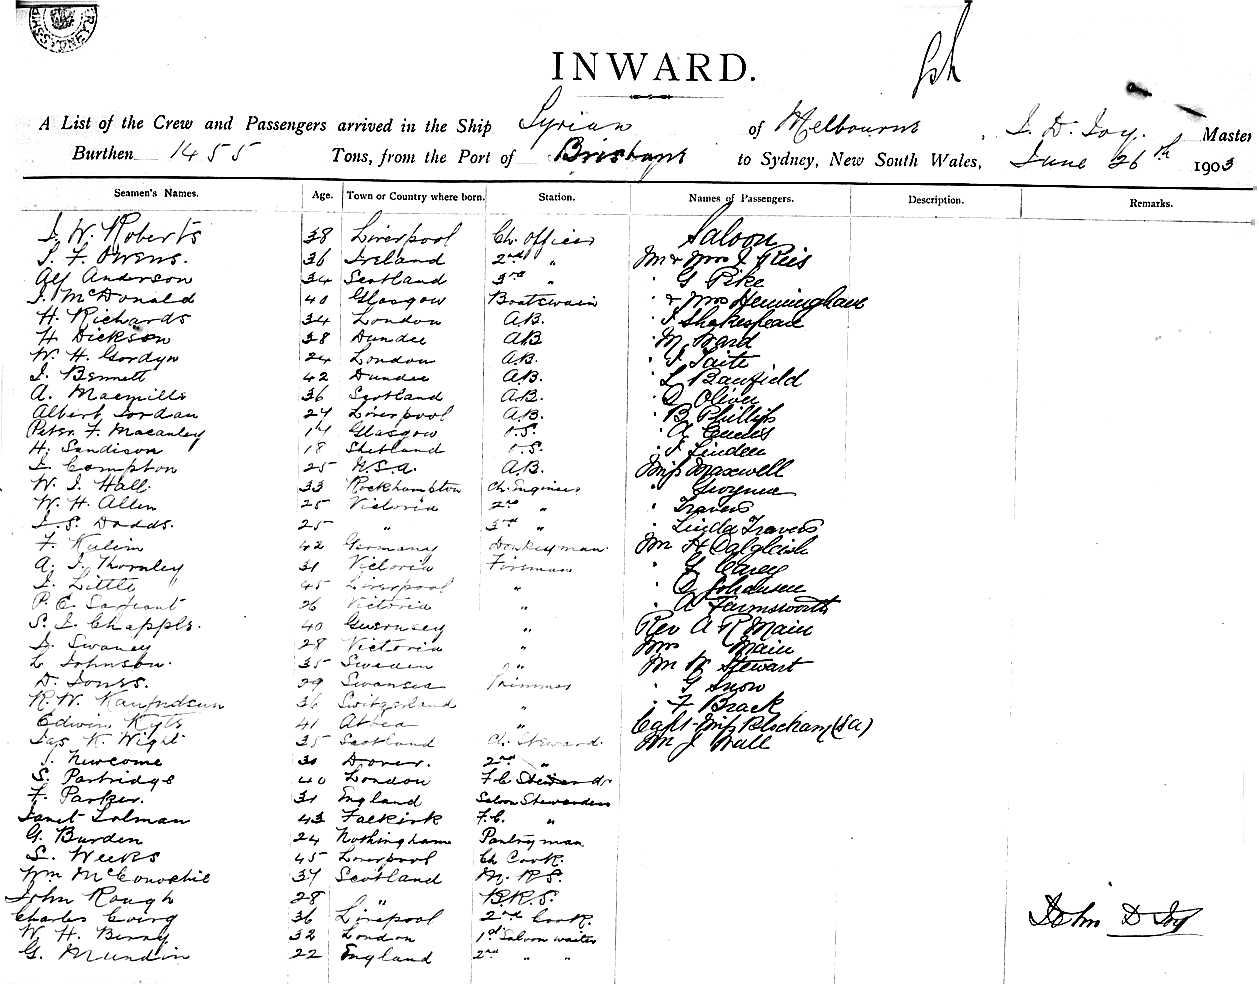 INWARD.
A List of the Crew and Passengers arrived in the Ship Syrian of Melbourne, J. D. Joy. Master
Burthen 1455 Tons, from the Port of Brisbane to Sydney, New South Wales, June 26th 1903
Seamen's Names. Age. Town or Country where born. Station. Names of Passengers. Description. Remarks.
J. W. Roberts 38 Liverpool Ch. Officer Saloon
S. F. Owens. 36 Ireland 2nd " Mr & Mrs J. Reis
Alf Anderson 34 Scotland 3rd " " G Pike
J. McDonald 40 Glasgow Boatswain " & Mrs Henningham
H. Richards 34 London A.B. " J Shakespeare
H. Dickson 38 Dundee A.B " M Ward
W. H. Gordyn 24 London A.B. " J. Taite
J. Bennett 42 Dundee A.B. " L Banfield
A. Macmills 36 Scotland A.B. " Oliver
Albert Jordan 24 Liverpool A.B. " B Phillips
Peter F. Macauley 17 Glasgow O.S. " A
H. Sandison 18 Shetland O.S. " J Linden
J. Compton 25 U.S.A. A.B. Miss Maxwell
W. J. Hall 33 Rockhampton Ch. Engineer " Gwynne
W. H. Allen 25 Victoria 2nd " " Travers
J. S. Dodds. 25 " 3rd " " Linda Travers
F. 42 Germany Donkeyman Mr H Dalgleish
A. J. Thornley 31 Victoria Fireman " G Carey
J. Little 45 Liverpool " " O Johansen
P. E. Sargeant 26 Victoria " " A Farnsworth
S. J. Chapple. 40 Guernsey " Rev A R Main
J. Swaney 28 Victoria " Mrs Main
L Johnson. 35 Sweden " Mr W Stewart
D. Jones. 29 Swansea Trimmer " G Snow
R. W. Kaufndsen 36 Switzerland " " F Brack
Edwin Kyle 41 " Capt Miss Blockam (SA)
Jas K. Wight 35 Scotland Ch. Steward. Mr J Wall
J. Newcome 30 Dover. 2nd "
S. Partridge 40 London F.C Steward
F. Parker. 31 England Saloon Stewardess
Janet Tolman 43 Falkirk F.C. "
G. Burden 24 Nottingham Pantryman
S. Weeks 45 Liverpool Ch Cook.
Wm McConochie 37 Scotland
John Rough 28 " B.K.S.
Charles Ewing 36 Liverpool 2nd Cook. John D Joy
W. H. Binny 32 London 1st Saloon waiter
G. Mundin 22 England 2nd " "